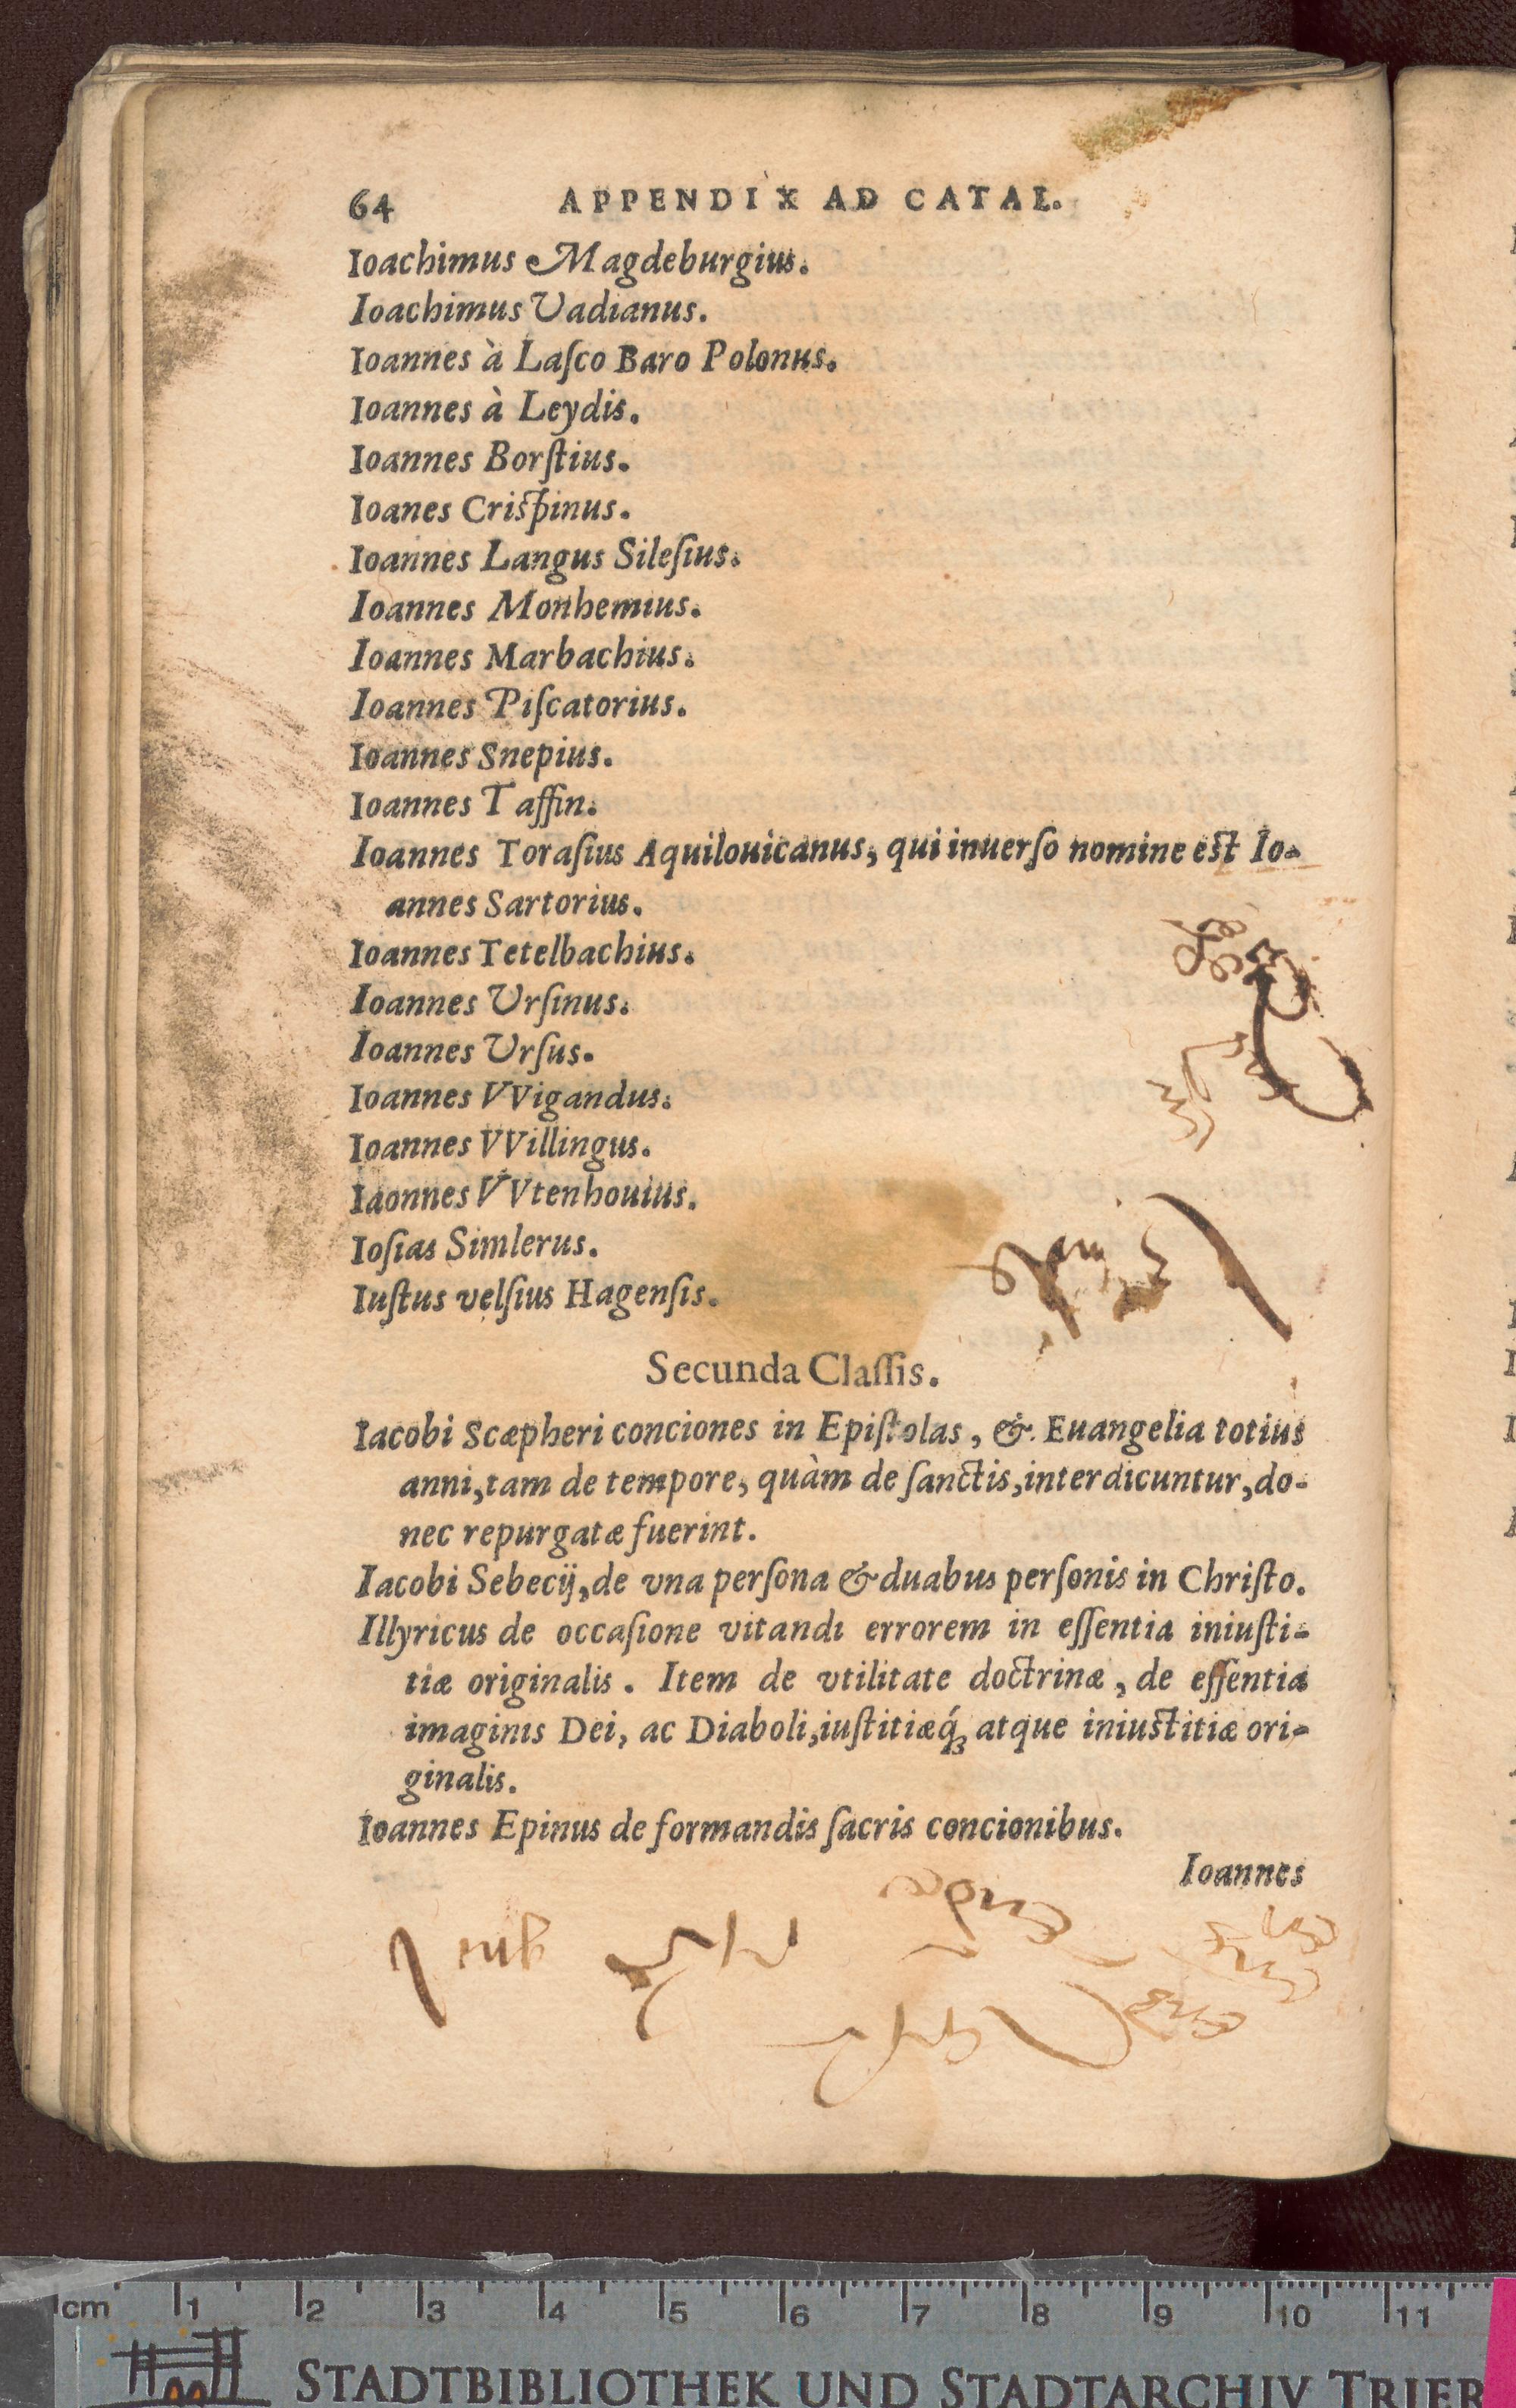 64 APPENDIX AD CATAL.
Ioachimus Magdeburgius.
Ioachimus Vadianus.
Ioannes à Laſco Baro Polonus.
Ioannes à Leydis.
Ioannes Borſtius.
Ioanes Criſpinus.
Ioannes Langus Sileſius.
Ioannes Monhemius.
Ioannes Marbachius.
Ioannes Piſcatorius.
Ioannes Snepius.
Ioannes Taſſin.
Ioannes Toraſius Aquilouicanus, qui inuerſo nomine eſt Io-
annes Sartorius.
Ioannes Tetelbachius.
Ioannes Vrſinus.
Ioannes Vrſus.
Ioannes VVigandus.
Ioannes VVillingus.
Iaonnes VVtenhouius.
Ioſias Simlerus.
Iuſtus velſius Hagenſis.
Secunda Claſſis.
Iacobi Scæpheri conciones in Epiſtolas, & Euangelia totius
anni, tam de tempore, quàm de ſanctis, interdicuntur, do-
nec repurgatæ fuerint.
Iacobi Sebecij, de vna perſona & duabus perſonis in Chriſto.
Illyricus de occaſione vitandi errorem in eſſentia iniuſti-
tiæ originalis. Item de vtilitate doctrinæ, de eſſentia
imaginis Dei, ac Diaboli, iuſtitiæq́ꝫ atque iniuſtitiæ ori-
ginalis.
Ioannes Epinus de formandis ſacris concionibus.
Ioannes
1cm 1 2 3 4 5 6 7 8 9 10 11
STADTBIBLIOTHEK UND STADTARCHIV TRIER